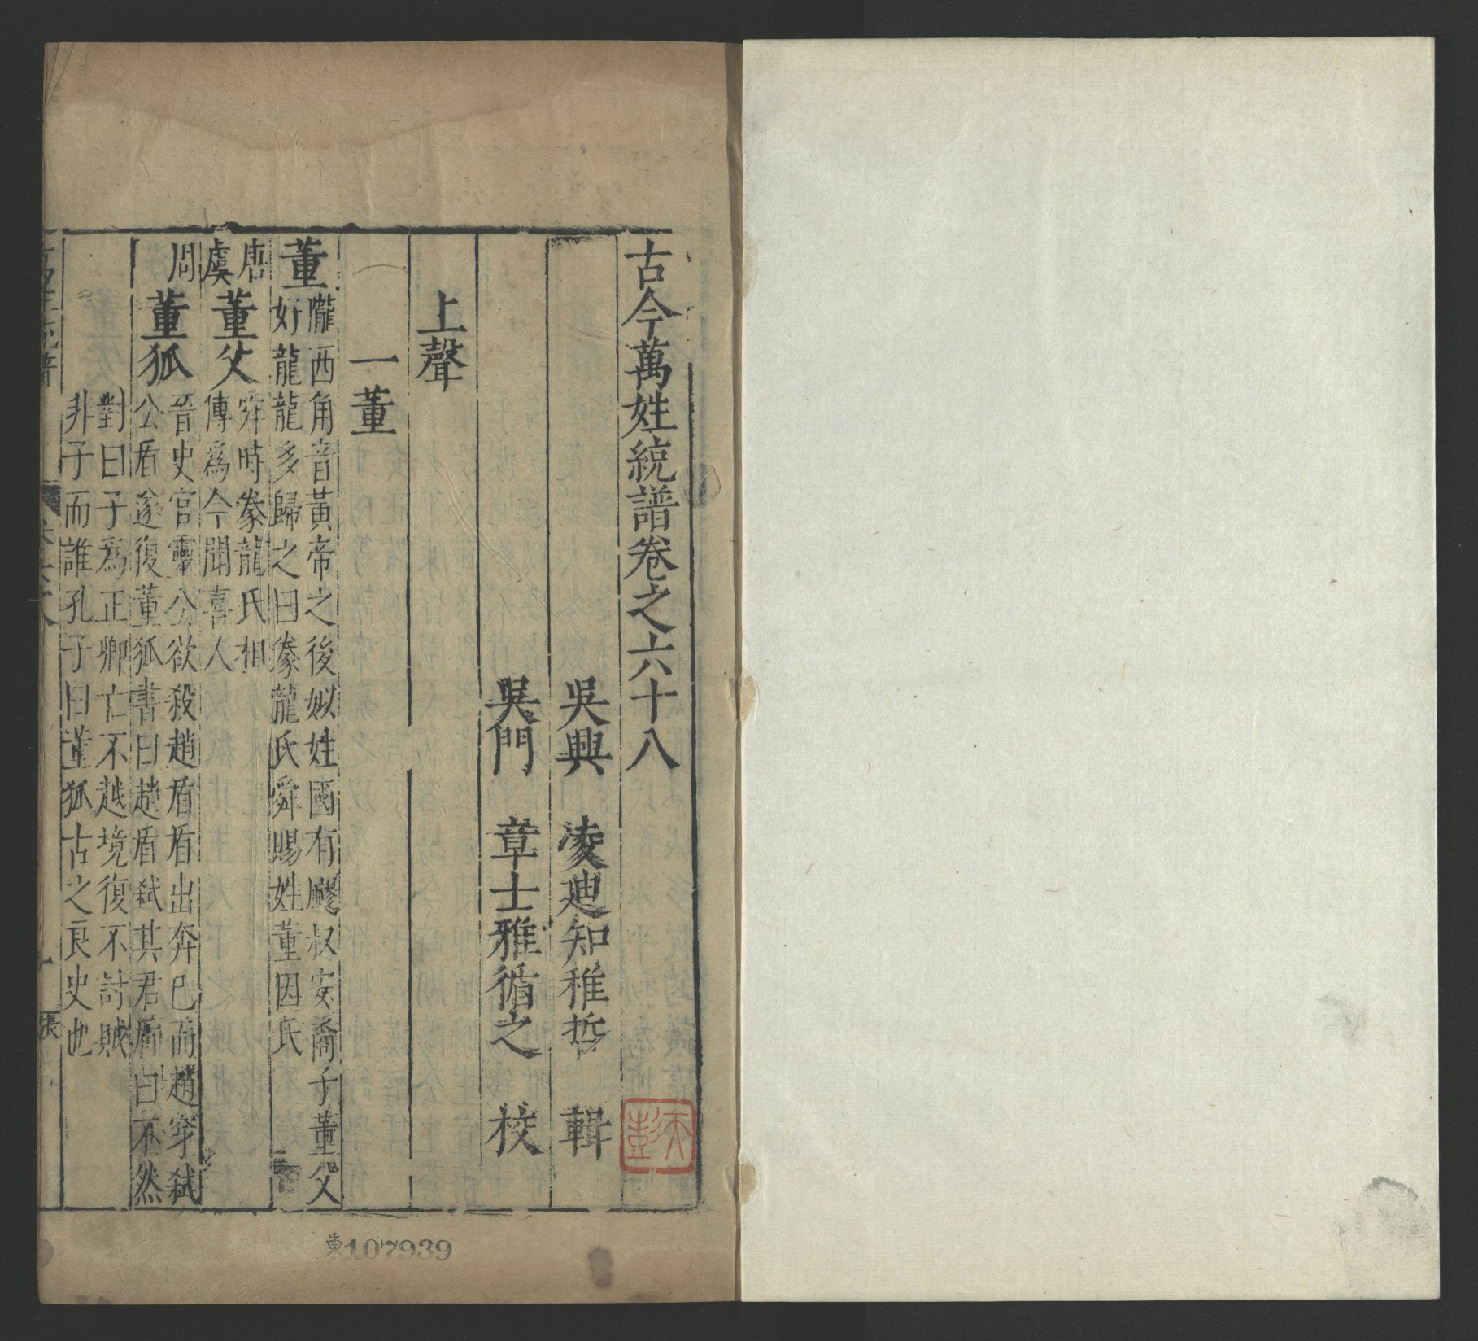 古今萬姓統譜卷之六十八
吳興　凌迪知稚哲　輯
吳門　章士雅循之　校
上聲
一董
董
隴西角音黃帝之後姒姓國有飂叔安裔子董父
好龍龍多歸之曰豢龍氏舜賜姓董因氏
唐虞
董父
舜時豢龍氏相
傳為今聞喜人
周
董狐
晉史官靈公欲殺趙盾盾出奔已而趙穿弒
公盾遂復董狐書曰趙盾弒其君盾曰不然
對曰子為正卿亡不越境復不討賊
非子而誰孔子曰董狐古之良史也
東107939